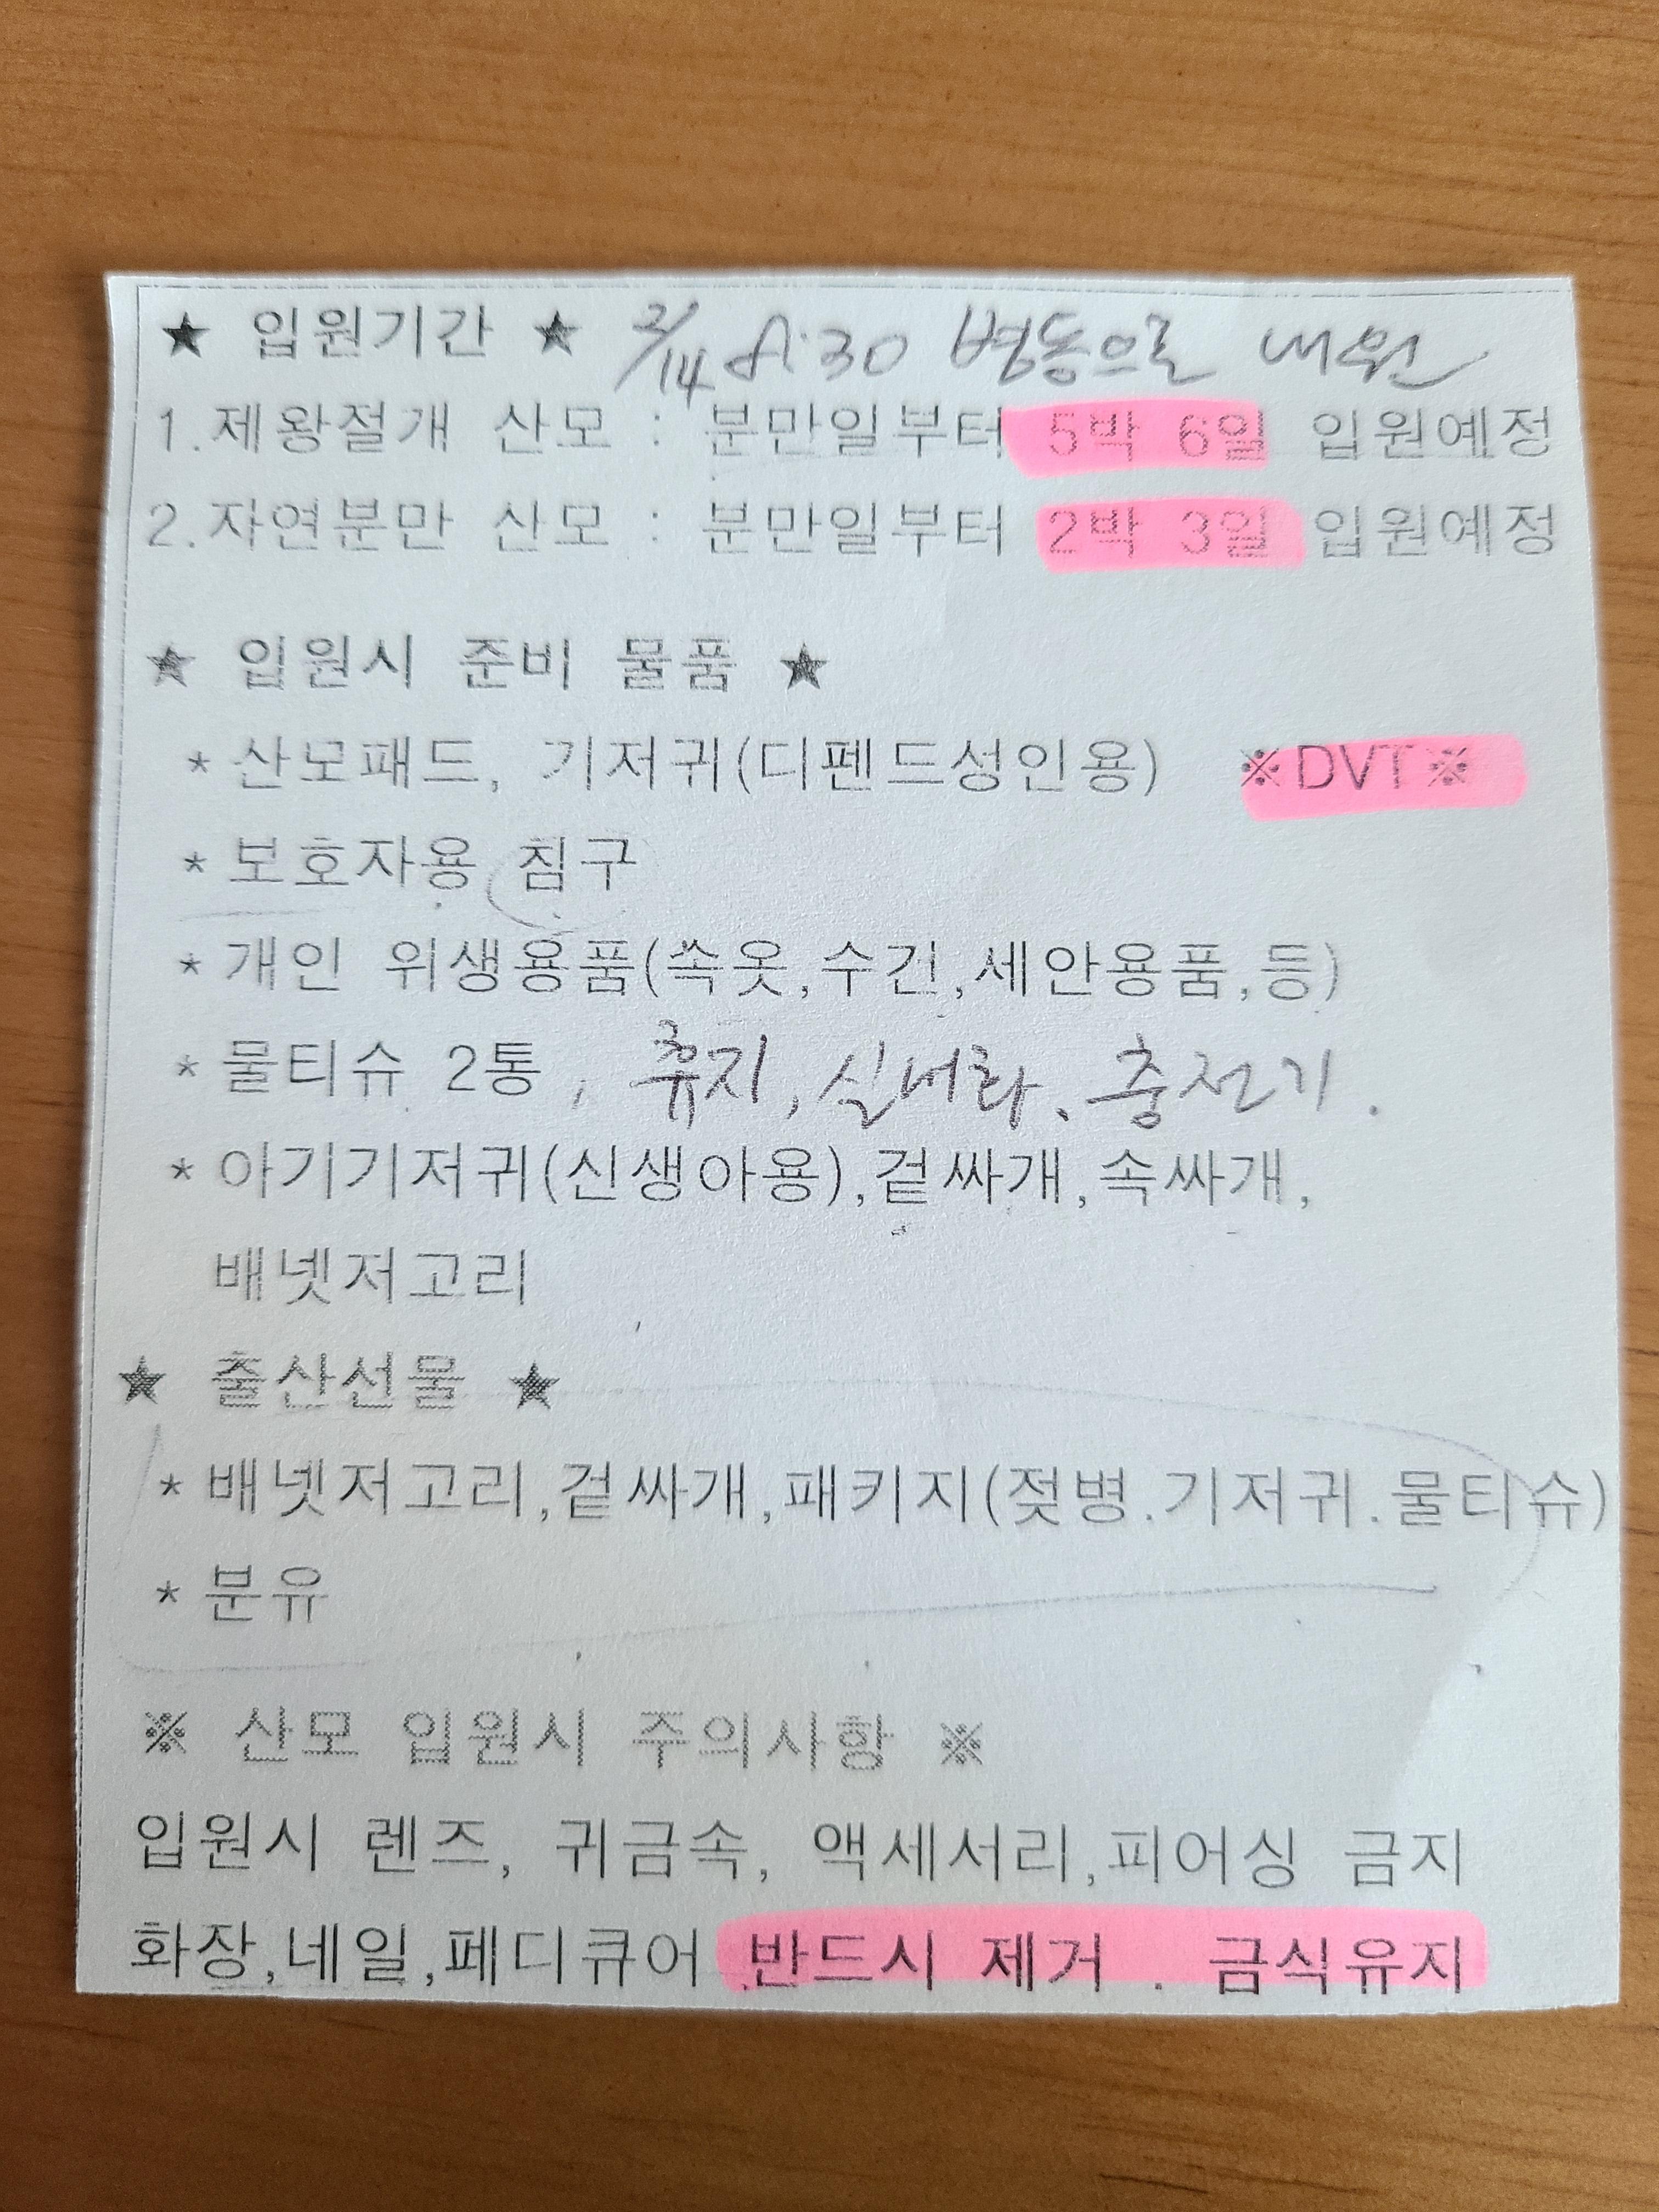 ★ 입원기간 ★ 2/14 8:30 병동으로 내원
1.제왕절개 산모 : 분만일부터 5박 6일 입원예정
2.자연분만 산모 : 분만일부터 2박 3일 입원예정
★ 입원시 준비 물품 ★
* 산모패드, 기저귀(디펜드성인용) ※DVT※
* 보호자용 침구
* 개인 위생용품(속옷,수건,세안용품,등)
* 물티슈 2통, 휴지, 실내화, 충전기.
* 아기기저귀(신생아용),겉싸개,속싸개,
배넷저고리
★ 출산선물 ★
* 배넷저고리,겉싸개,패키지(젖병.기저귀.물티슈)
* 분유
※ 산모 입원시 주의사항 ※
입원시 렌즈, 귀금속, 액세서리,피어싱 금지
화장,네일,페디큐어 반드시 제거 . 금식유지